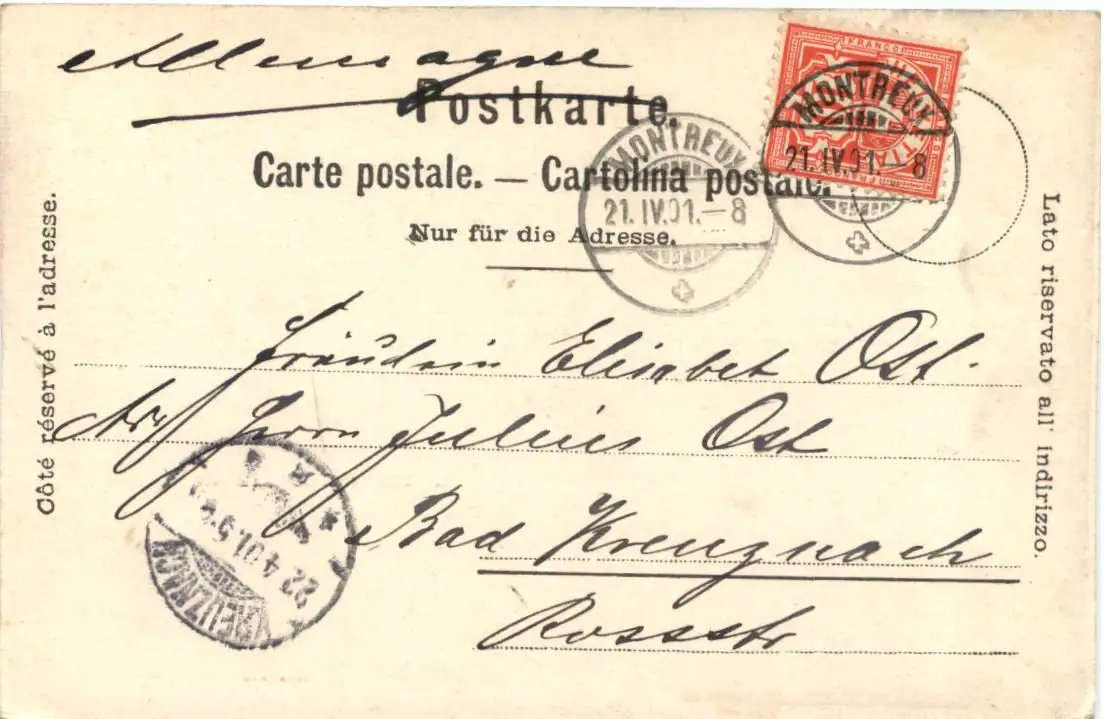 Allemagne
Postkarte.
Carte postale. — Cartolina postale.
Nur für die Adresse.
Côté réservé à l'adresse.
Lato riservato all' indirizzo.
FRANCO
MONTREUX
21.IV.01.–8
MONTREUX
21.IV.01.–8
Fräulein Elisabet Ost.
Herrn Julius Ost
Bad Kreuznach
Rossstr
KREUZNACH
22.4.01.5